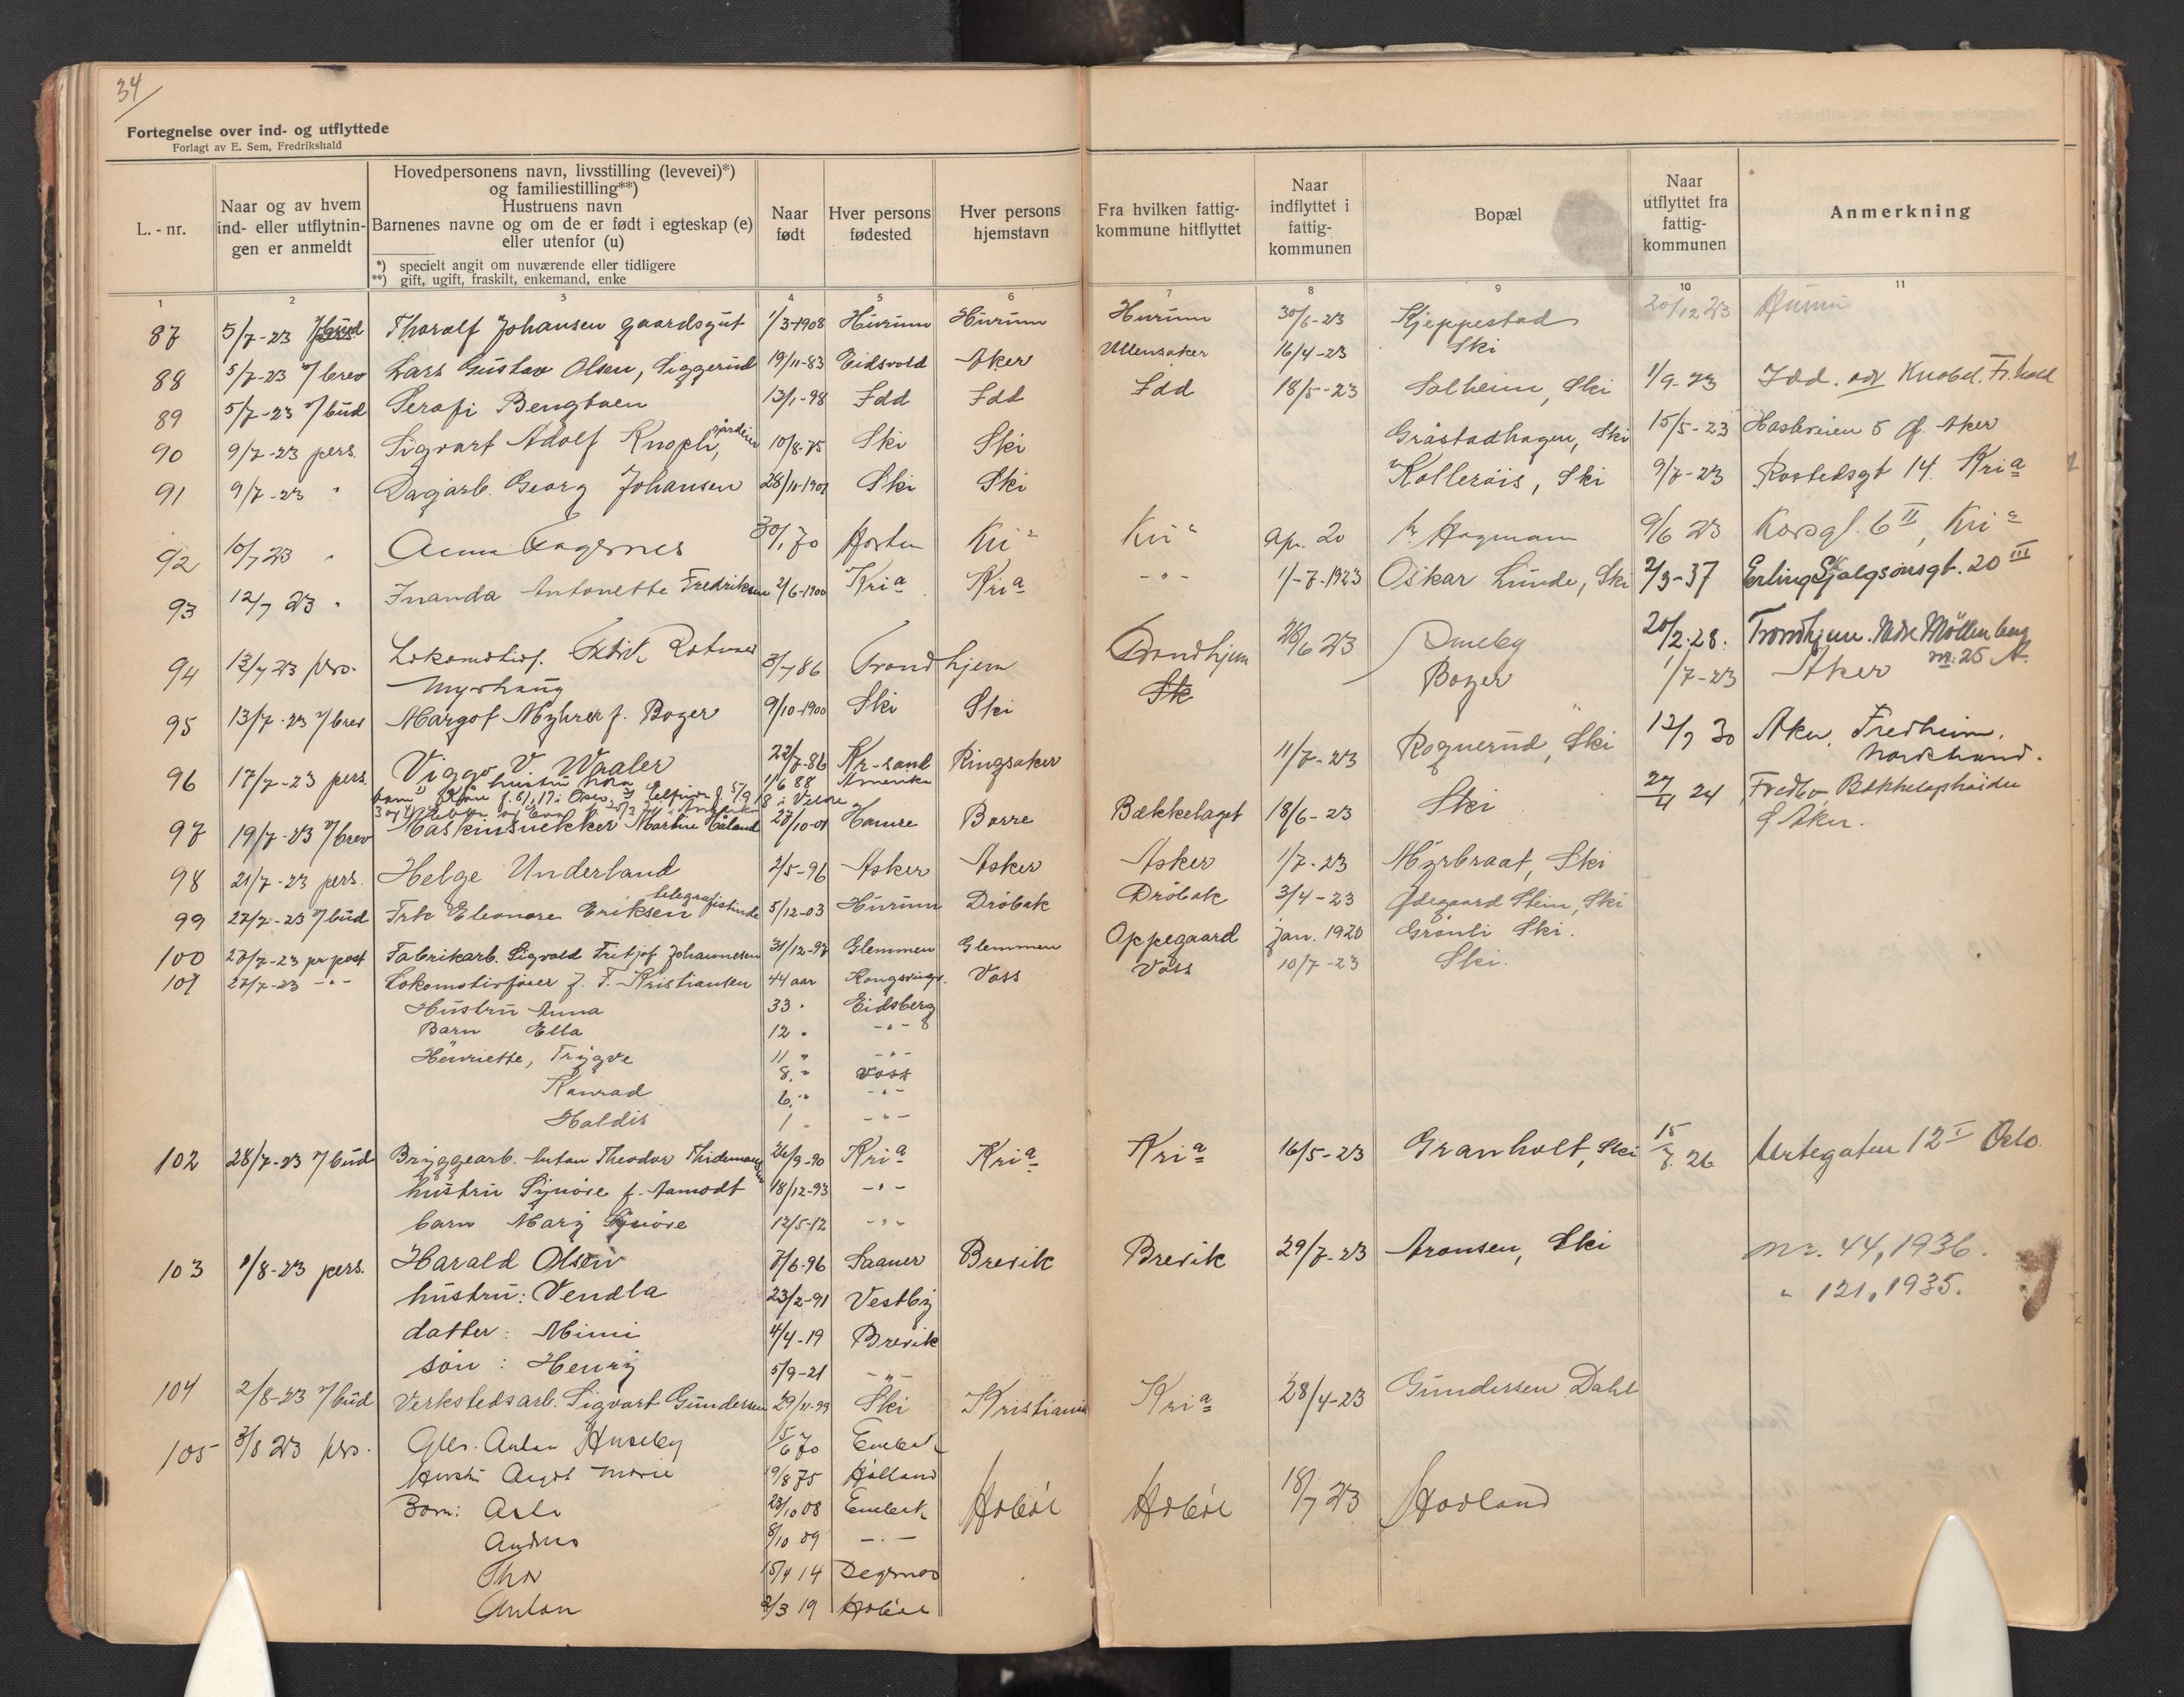 34
Fortegnelse over ind- og utflyttede
Forlagt av E. Sem, Fredrikshald
L. - nr.
Naar og av hvem ind- eller utflytnin- gen er anmeldt
Hovedpersonens navn, livsstilling (levevei)*)
og familiestilling**)
Hustruens navn
Barnenes navne og om de er født i egteskap (e)
eller utenfor (u)
*) specielt angit om nuværende eller tidligere
**) gift, ugift, fraskilt, enkemand, enke
Naar født
Hver persons fødested
Hver persons hjemstavn
Fra hvilken fattig- kommune hitflyttet
Naar indflyttet i fattig- kommunen
Bopæl
Naar utflyttet fra fattig- kommunen
Anmerkning
1 2 3 4 5 6 7 8 9 10 11
87 5/7-23 Thoralf Johansen gaardsgut 1/3-1908 Hurum Hurum Hurum 30/6-23 Kjeppestad 20/12 23 Hurum
88 5/7-23 v/ brev Lars Gustav Olsen, Siggerud 19/11-83 Eidsvold Aker Ullensaker 16/4-23 Ski
89 5/7-23 v/ bud Serafi Bengtsen 13/1-98 Idd Idd Idd 18/5-23 Solheim, Ski 1/9-23 Idd. adr Knobel. Fr.hald
90 9/7-23 pers. Sigvart Adolf Knopli, 10/8-75 Ski Ski Gråstadhagen, Ski 15/5-23 Hasleveien 5 Aker
91 9/7-23 " Dagarb. Georg Johansen 28/11-1901 Ski Ski Kollerøis, Ski 9/7-23 Rostedsgt 14. Kria
92 10/7 23 " Anna Fagernes 30/1 70 Horten Kria Kria Apr. 20 Hagmann 9/6 23 Korsgt. 6 II, Kria
93 12/7 23 " Inanda Antonette Fredriksen 2/6-1900 Kria Kria -"- 1/-7-1923 Oskar Lunde, Ski 2/3-37 Erling Skjalgsonsgt. 20 III
94 13/7 23 pers. Lokomotivf. Fredrik Rotvold 3/7 86 Trondhjem Trondhjem 28/6 23 Smeby 20/2-28. Trondhjem. Ndre Møllenberg
Myrhaug nr. 25 A.
95 13/7-23 v/ brev Margot Myhrer f. Bozer 9/10-1900 Ski Ski Sk Bozer 1/7-23 Aker
96 17/7-23 pers. Viggo V. Waaler 22/7-86 Kr-sand Ringsaker 11/7-23 Rognerud, Ski 12/9 30 Aker, Fredheim,
hustru Nora 11/6 88 Amerika Nordstrand.
97 19/7-23 v/ brev Maskinsnekker Martin Håland 23/10-01 Hamre Borre Bækkelaget 18/6-23 Ski 27/4 24 Fredbo Bækkelagshøiden
Aker.
98 21/7-23 pers. Helge Underland 2/5-96 Asker Asker Asker 1/7-23 Myrbraat, Ski
99 27/7-23 v/ bud Frk Eleonore Eriksen telegrafistinde 5/12-03 Hurum Drøbak Drøbak 3/4-23 Ødegaard Stein, Ski
100 27/7-23 pr post Fabrikarb. Sigvald Fritjof Johannesen 31/12-97 Glemmen Glemmen Oppegaard Jan. 1920 Grønli Ski.
101 27/7-23 -"- Lokomotivfører J. F. Kristiansen 44 aar Kongsvinger. Voss Voss 10/7-23 Ski.
Hustru Anna 33 " Eidsberg
Barn Ella 12 " -"-
Henriette, Trygve 11 " -"-
8, " Voss
Konrad 6, " -"-
Haldis 1 " -"-
102 28/7-23 v/ bud Bryggearb. Anton Theodor Thidemansen 26/9-90 Kria Kria Kria 16/5-23 Granholt, Ski 15/7. 26 Urtegaten 12 I Oslo.
hustru Synøve f. Aamodt 18/12-93 -"-
barn Mary Synøve 12/5-12 -"-
103 1/8-23 pers. Harald Olsen 7/6-96 Saaner Brevik Brevik 29/7-23 Aronsen, Ski nr. 44, 1936.
hustru: Vendla 23/2-91 Vestby " 121, 1935.
datter: Mimi 4/4-19 Brevik
søn: Henry 5/9-21 -"-
104 2/8-23 v/ bud Verkstedsarb. Sigvart Gundersen 29/11-99 Ski Kristiania Kria 28/4-23 Gundersen Dahl
105 3/8 23 pers. Anton Huseby 15/6 70 Enebak
Hustru Marie 19/8 75 Høland
Barn: Asle 23/10 08 Enebak Hobøl Hobøl 18/7 23 Hovland
Andreas 8/10 09 -"-
Thor 15/4 14 Degernes
Anton 2/3 19 Hobøl